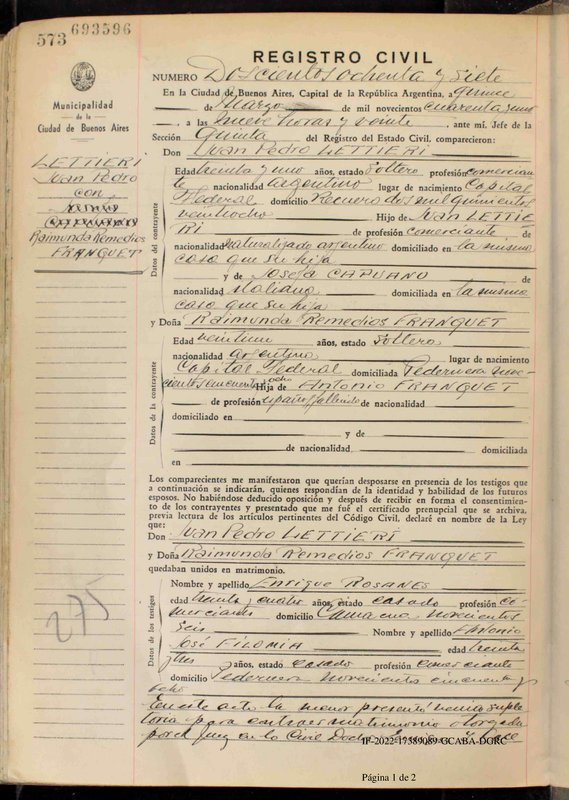 573 693596
REGISTRO CIVIL
NUMERO Doscientos ochenta y siete
Municipalidad
de la
Ciudad de Buenos Aires
En la Ciudad de Buenos Aires, Capital de la República Argentina, a quince
de Marzo de mil novecientos cuarenta y uno
, a las nueve horas y veinte , ante mí, Jefe de la
Sección Quinta del Registro del Estado Civil, comparecieron:
LETTIERI
Juan Pedro
con
Raimunda Remedios
FRANQUET
Don Juan Pedro LETTIERI
Datos del contrayente
Edad treinta y uno años, estado soltero profesión comercian
te nacionalidad argentino lugar de nacimiento Capital
Federal domicilio Recuero dos mil quinientos
veintiocho Hijo de Juan LETTIE
RI de profesión comerciante de
nacionalidad naturalizado argentino domiciliado en la misma
casa que su hijo
y de Josefa CAPUANO de
nacionalidad italiana domiciliada en la misma
casa que su hijo
y Doña Raimunda Remedios FRANQUET
Datos de la contrayente
Edad veintiun años, estado soltera
nacionalidad argentina lugar de nacimiento
Capital Federal domiciliada Pedernera nove-
cientos cincuenta y ocho Hija de Antonio FRANQUET
de profesión español fallecido de nacionalidad
domiciliado en
y de
de nacionalidad domiciliada
en
Los comparecientes me manifestaron que querían desposarse en presencia de los testigos que
a continuación se indicarán, quienes respondían de la identidad y habilidad de los futuros
esposos. No habiéndose deducido oposición y después de recibir en forma el consentimien-
to de los contrayentes y prenupcial que se archiva,
previa lectura de los artículos pertinentes del Código Civil, declaré en nombre de la Ley
que:
Don Juan Pedro LETTIERI
y Doña Raimunda Remedios FRANQUET
quedaban unidos en matrimonio.
275
Datos de los testigos
Nombre y apellido Enrique ROSANES
edad treinta y cuatro años, estado casado profesión co-
merciante domicilio Camacua novecientos
seis Nombre y apellido Antonio
José FILOMIA edad treinta
y tres años, estado casado profesión comerciante
domicilio Pedernera novecientos cincuenta y
ocho
En este acto la menor presentó venia suple
toria para contraer matrimonio otorgada
por el Juez en lo Civil Doctor
IF-2022-17589089-GCABA-DGRC
Página 1 de 2